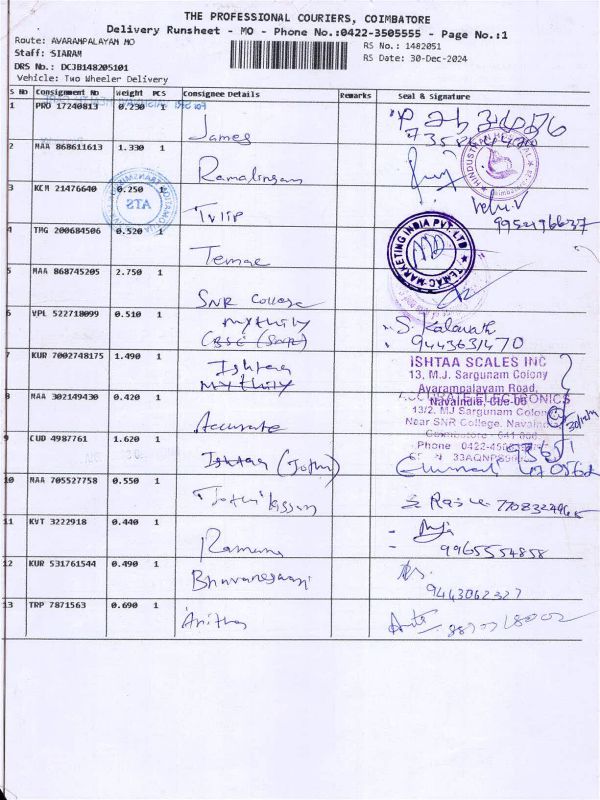 THE PROFESSIONAL COURIERS, COIMBATORE
Delivery Runsheet - MO - Phone No.:0422-3505555 - Page No.:1
Route: AVARAMPALAYAM MO
RS No.: 1482051
Staff: SIARAM
RS Date: 30-Dec-2024
DRS No.: DCJB148205101
Vehicle: Two Wheeler Delivery
S No Consignment No Weight PCS Consignee Details Remarks Seal & Signature
1 PRO 17240813 0.230 1 James
2 MAA 868611613 1.330 1 Ramalingam
3 KCM 21476640 0.250 1 Tulip
ATS
9952196637
4 TMG 200684506 0.520 1 Temac
TEMAC MARKETING INDIA PVT. LTD
5 MAA 868745205 2.750 1 SNR College
6 VPL 522718099 0.510 1 Mythily
S. Kalavathi
9443631470
7 KUR 7002748175 1.490 1 Ishtaa
Mythily
ISHTAA SCALES INC
13, M.J. Sargunam Colony
Avarampalayam Road,
Navaindia, Cbe-06
8 MAA 302149430 0.420 1 Accurate
ACCURATE ELECTRONICS
13/2, MJ Sargunam Colony
Near SNR College, Navaindia
9 CUD 4987761 1.620 1 Ishtaa (Jothi)
10 MAA 705527758 0.550 1
7708324965
11 KVT 3222918 0.440 1 Ramana
9965554858
12 KUR 531761544 0.490 1 Bhuvaneswari
9443062327
13 TRP 7871563 0.690 1 Anitha